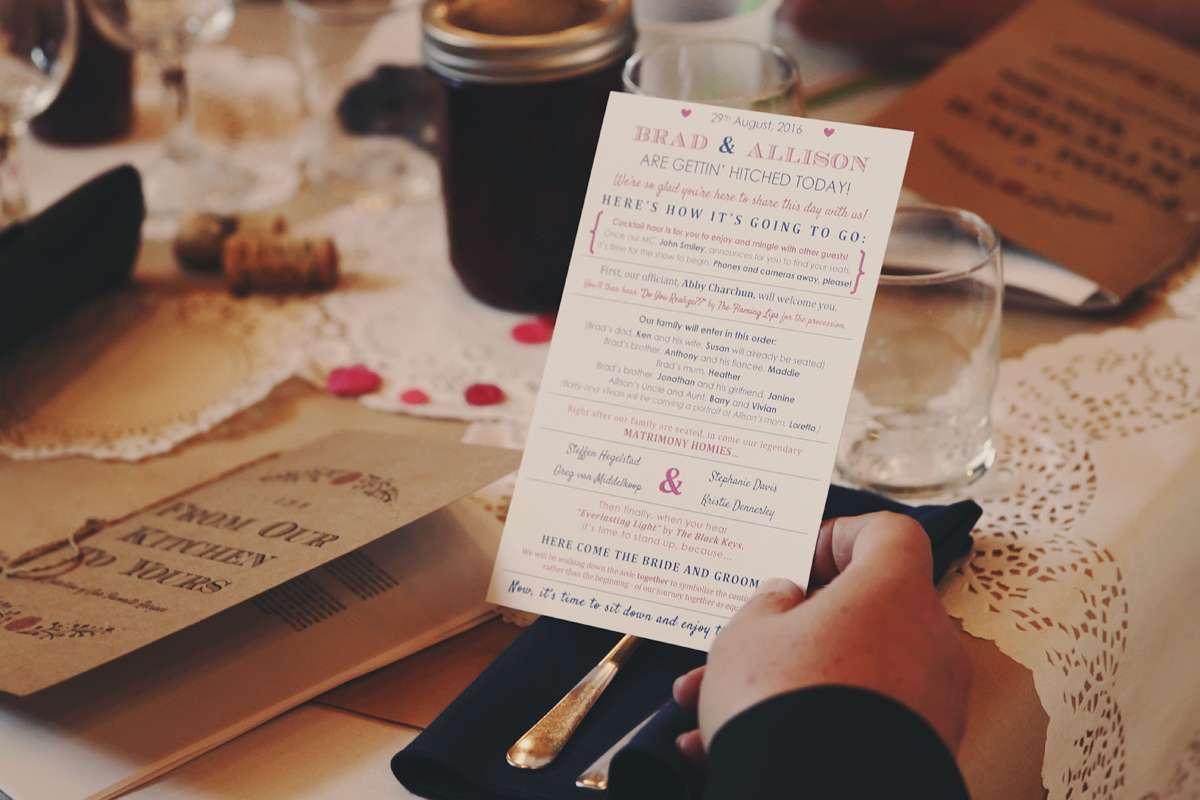 29th August, 2016
BRAD & ALLISON
ARE GETTIN' HITCHED TODAY!
We're so glad you're here to share this day with us!
HERE'S HOW IT'S GOING TO GO:
Cocktail hour is for you to enjoy and mingle with other guests!
Once our MC, John Smiley, announces for you to find your seats,
it's time for the show to begin. Phones and cameras away, please!
First, our officiant, Abby Charchun, will welcome you.
You'll then hear "Do You Realize??" by The Flaming Lips for the procession.
Our family will enter in this order:
(Brad's dad, Ken and his wife, Susan will already be seated)
Brad's brother, Anthony and his fiancée, Maddie
Brad's mum, Heather
Brad's brother, Jonathan and his girlfriend, Janine
Allison's Uncle and Aunt, Barry and Vivian
(Barry and Vivian will be carrying a portrait of Allison's mom, Loretta)
Right after our family are seated, in come our legendary
MATRIMONY HOMIES...
Steffen Hegelstad
Greg van Middelkoop
&
Stephanie Davis
Kristie Dennerley
Then finally, when you hear
"Everlasting Light" by The Black Keys,
it's time to stand up, because...
HERE COME THE BRIDE AND GROOM
We will be walking down the aisle together to symbolize the
rather than the beginning - of our journey together as
Now, it's time to sit down and enjoy
FROM OUR
KITCHEN
TO YOURS